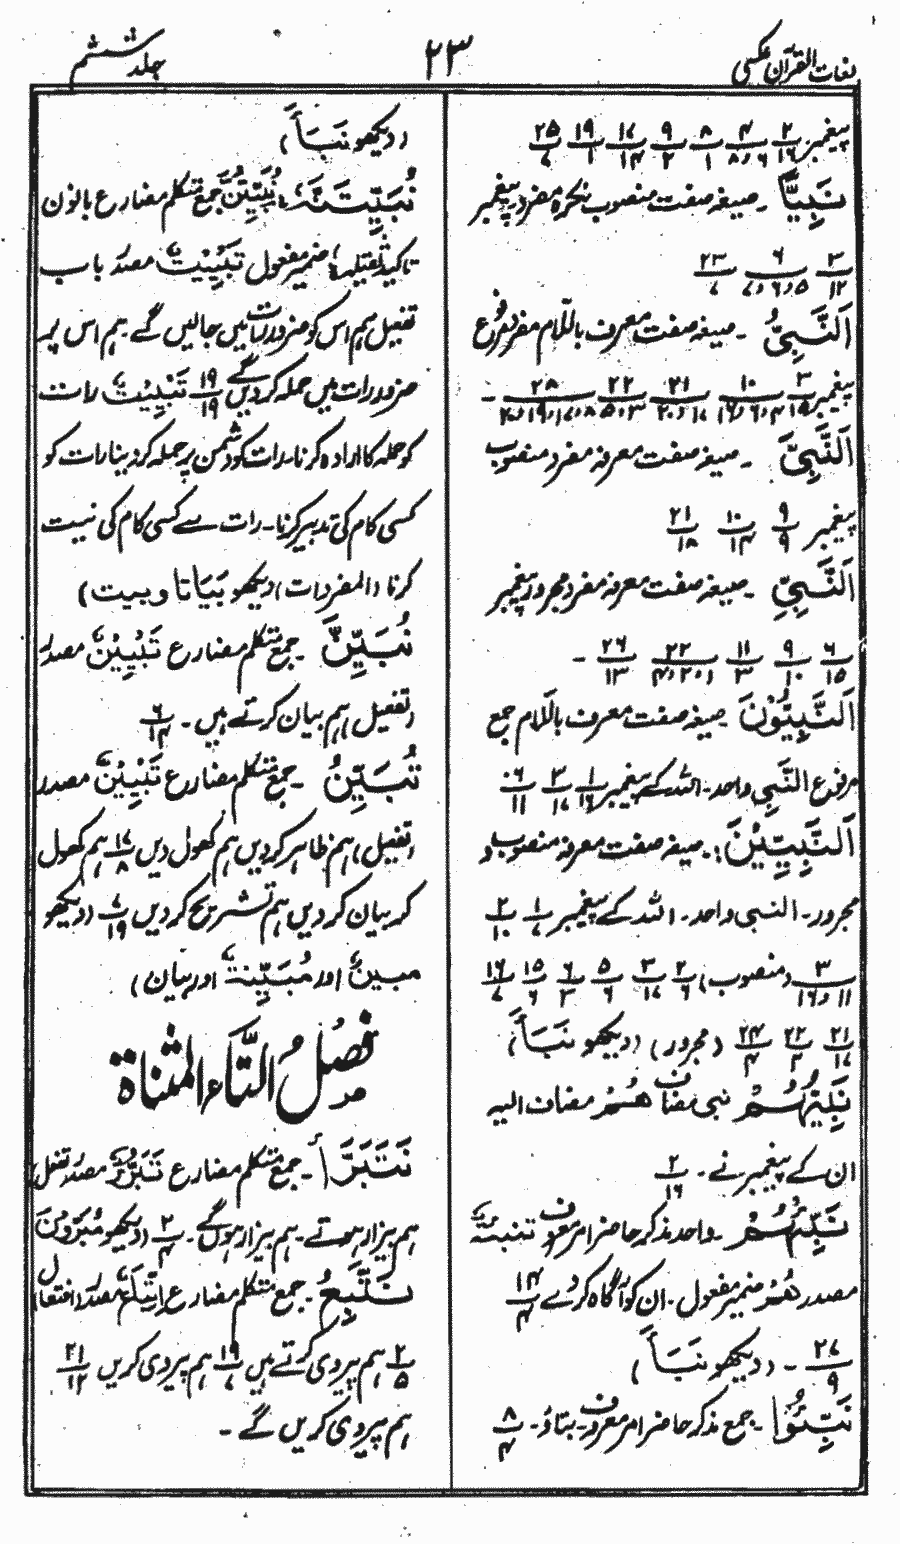 لغات القرآن عکسی
۲۳
جلد ششم
پیغمبر
نَبِیًّا ۔ صیغہ صفت منصوب نکرہ مفرد۔ پیغمبر
اَلنَّبِیُّ ۔ صیغہ صفت معرف باللام مفرد مرفوع
پیغمبر
اَلنَّبِیَّ ۔ صیغہ صفت معرفہ مفرد منصوب
پیغمبر ۹/۹ ۱۰/۱۴ ۲۱/۱۸
اَلنَّبِیِّ ۔ صیغہ صفت معرفہ مفرد مجرور پیغمبر
۶/۱۵ ۹/۱۰ ۱۱/۳ ۲۲/۱،۲،۴ ۲۶/۱۳ ۔
اَلنَّبِیُّوْنَ ۔ صیغہ صفت معرف باللام جمع
مرفوع النَّبِی واحد۔ اللہ کے پیغمبر ۱/۱۶ ۳/۱۷ ۶/۱۱
اَلنَّبِیّٖنَ ۔ صیغہ صفت معرفہ منصوب و
مجرور۔ النبی واحد۔ اللہ کے پیغمبر ۱/۷ ۲/۱۰
(منصوب)
۲۱/۱۷ ۲۲/۳ ۲۴/۴ (مجرور) (دیکھو نَبَأ)
نَبِیُّهُمْ نبی مضاف هُمْ مضاف الیہ
ان کے پیغمبر نے ۔ ۲/۱۶
نَبِّئْهُمْ ۔ واحد مذکر حاضر امر معروف تنبئۃ
مصدر هُمْ ضمیر مفعول۔ ان کو آگاہ کردے ۱۴/۴
۲۷/۹ ۔ (دیکھو نَبَأ)
نَبِّئُوْا ۔ جمع مذکر حاضر امر معروف۔ بتاؤ ۔ ۸/۴
(دیکھو نَبَأ)
نُبَیِّتَنَّهٗ: نُبَیِّتَنَّ جمع متکلم مضارع بانون
تاکید ثقیلہ، ہٗ ضمیر مفعول تَبْیِیْت مصدر باب
تفعیل ہم اس کو ضرور رات میں جالیں گے ہم اس پر
ضرور رات میں حملہ کر دیں گے ۱۹/۱۹ تَبْیِیْت رات
کو حملہ کا ارادہ کرنا۔ رات کو دشمن پر حملہ کرنے بنا رات کو
کسی کام کی تدبیر کرنا۔ رات سے کسی کام کی نیت
کرنا (المفردات) (دیکھو بَیَاتًا و بیت)
نُبَیِّنَ ۔ جمع متکلم مضارع تَبْیِیْنٌ مصدر
(تفعیل) ہم بیان کرتے ہیں ۔ ۶/۱۴
نُبَیِّنُ ۔ جمع متکلم مضارع تَبْیِیْنٌ مصدر
(تفعیل) ہم ظاہر کر دیں ہم کھول دیں ۱۷/۸ ہم کھول
کر بیان کر دیں ہم تشریح کر دیں ۷/۱۹ (دیکھو
مبینٌ اور مُبَیِّنَةٌ اور بیان)
فصلُ التَّاء المثناة
نَتَبَرَّأ ۔ جمع متکلم مضارع تَبَرُّءٌ مصدر تفعل
ہم بیزار ہوتے۔ ہم بیزار ہوں گے ۔ ۲/۴ (دیکھو مُبَرَّءُوْنَ
نَتَّبِعُ ۔ جمع متکلم مضارع اِتِّبَاعٌ مصدر (افتعال)
۲/۵ ہم پیروی کرتے ہیں ۱۹/۷ ہم پیروی کریں ۲۱/۱۲
ہم پیروی کریں گے ۔